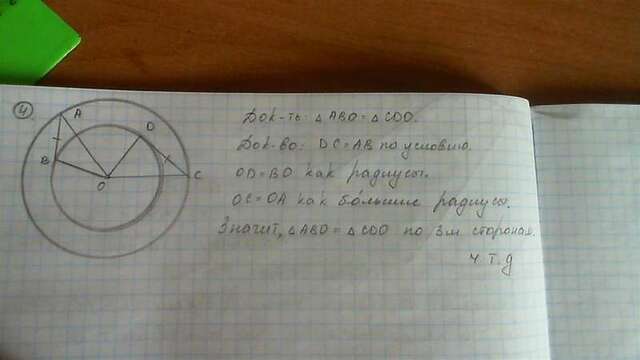 4
A
B
D
C
O
Док-ть: △ABO = △CDO.
Док-во: DC = AB по условию.
OD = BO как радиусы.
OC = OA как большие радиусы.
Значит, △ABO = △CDO по 3м сторонам.
ч.т.д